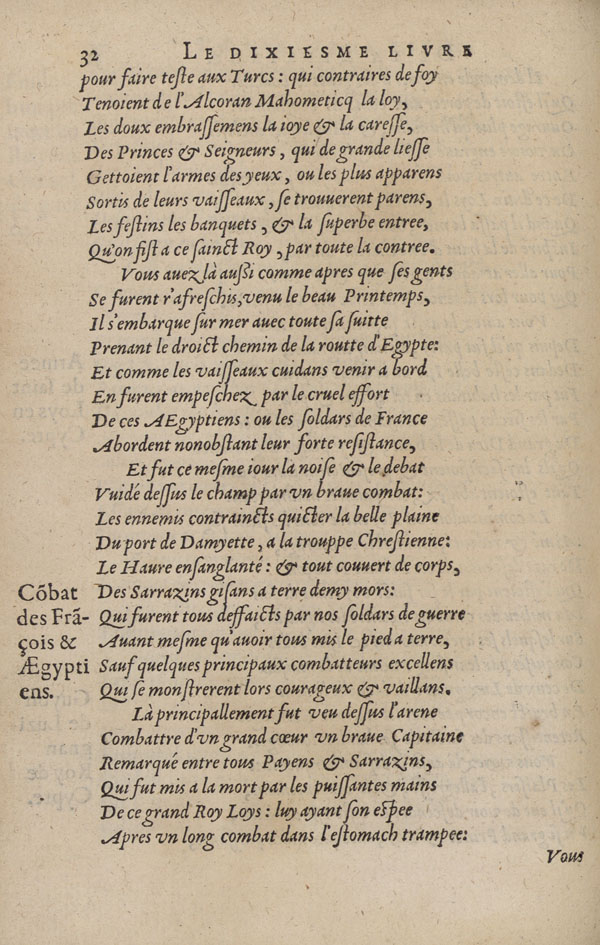 32 LE DIXIESME LIVRE
pour faire teſte aux Turcs : qui contraires de foy
Tenoient de l'Alcoran Mahometicq la loy,
Les doux embraſſemens la ioye & la careſſe,
Des Princes & Seigneurs, qui de grande lieſſe
Gettoient l'armes des yeux, ou les plus apparens
Sortis de leurs vaiſſeaux, ſe trouuerent parens,
Les feſtins les banquets, & la ſuperbe entree,
Qu'on fiſt a ce ſainct Roy, par toute la contree.
Vous auez là auſſi comme apres que ſes gents
Se furent r'afreſchis, venu le beau Printemps,
Il s'embarque ſur mer auec toute ſa ſuitte
Prenant le droict chemin de la routte d'Egypte:
Et comme les vaiſſeaux cuidans venir a bord
En furent empeſchez par le cruel effort
De ces AEgyptiens : ou les ſoldars de France
Abordent nonobſtant leur forte reſiſtance,
Et fut ce meſme iour la noiſe & le debat
Vuidé deſſus le champ par vn braue combat:
Les ennemis contraincts quicter la belle plaine
Du port de Damyette, a la trouppe Chreſtienne:
Le Haure enſanglanté : & tout couuert de corps,
Des Sarrazins giſans a terre demy mors:
Qui furent tous deffaicts par nos ſoldars de guerre
Auant meſme qu'auoir tous mis le pied a terre,
Sauf quelques principaux combatteurs excellens
Qui ſe monſtrerent lors courageux & vaillans.
Là principallement fut veu deſſus l'arene
Combattre d'vn grand cœur vn braue Capitaine
Remarqué entre tous Payens & Sarrazins,
Qui fut mis a la mort par les puiſſantes mains
De ce grand Roy Loys : luy ayant ſon eſpee
Apres vn long combat dans l'eſtomach trampee:
Vous
Cõbat
des Frã-
çois &
Ægypti
ens.